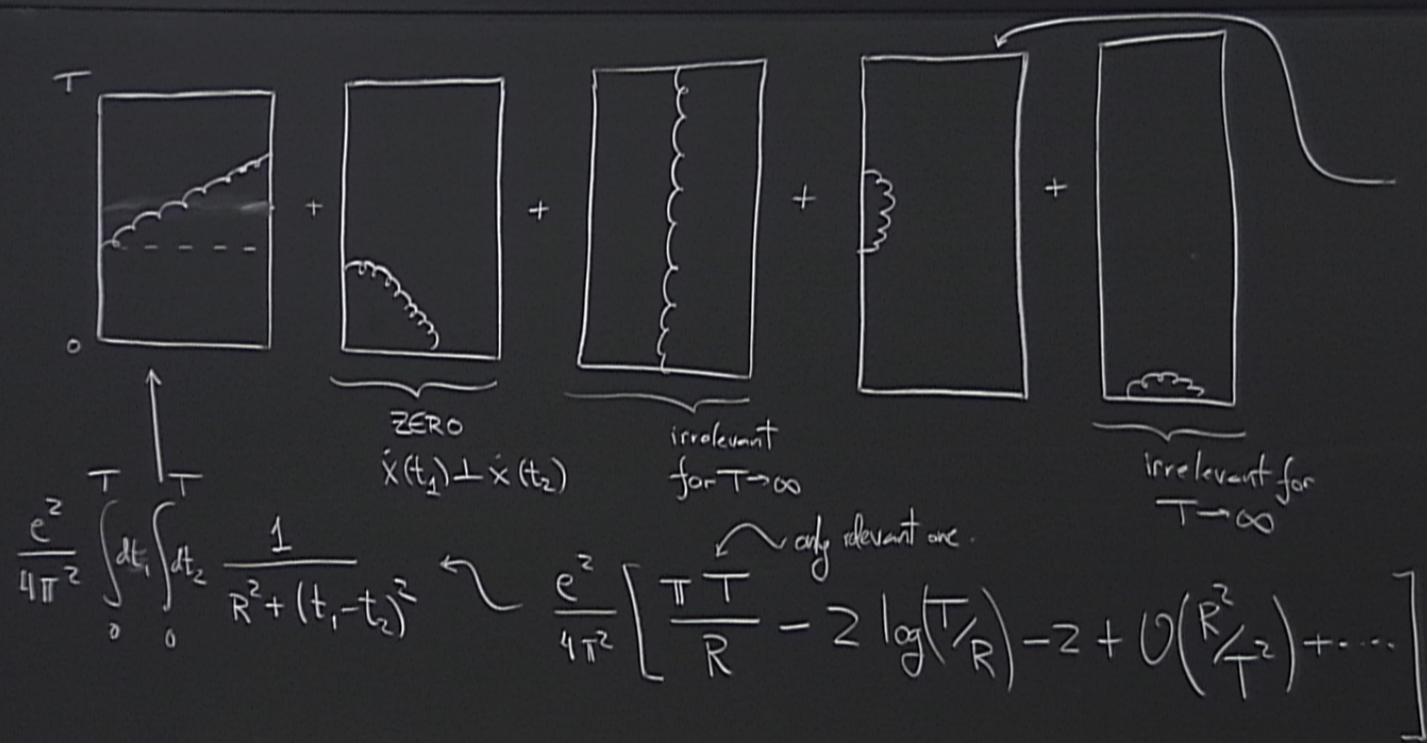 T
+ + + +
0
ZERO
ẋ(t₁)⊥ẋ(t₂)
irrelevant
for T→∞
irrelevant for
T→∞
only relevant one.
e²/4π² ∫₀ᵀ dt₁ ∫₀ᵀ dt₂ 1/(R²+(t₁-t₂)²)
e²/4π² [ πT/R - 2 log(T/R) - 2 + O(R²/T²) + .... ]